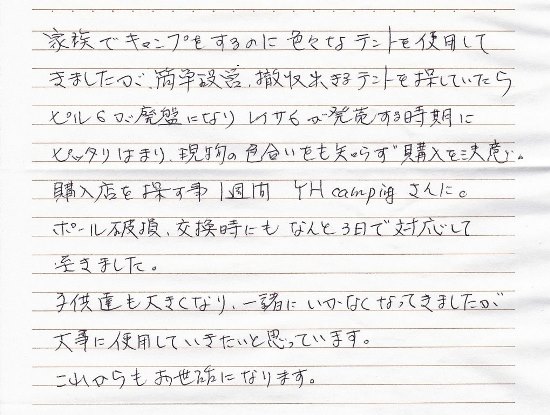 家族でキャンプをするのに色々なテントを使用して
きましたが、簡単設営、撤収出きるテントを探していたら
ピルツ6が廃盤になり レイサ6が発売する時期に
ピッタリはまり、現物の色合いをも知らず購入を決意。
購入店を探す事1週間 YH camping さんに。
ポール破損、交換時にも なんと3日で対応して
頂きました。
子供達も大きくなり、一緒にいかなくなってきましたが
大事に使用していきたいと思っています。
これからもお世話になります。